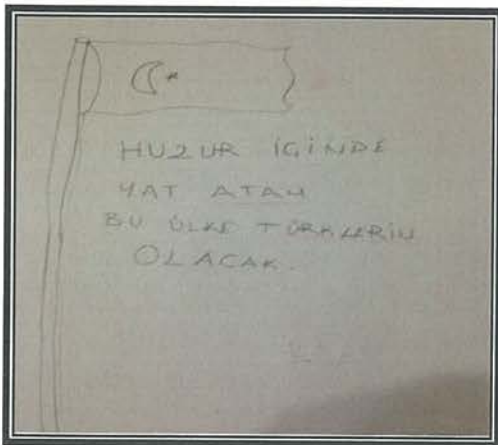 HUZUR İÇİNDE
YAT ATAM
BU ÜLKE TÜRKLERİN
OLACAK.